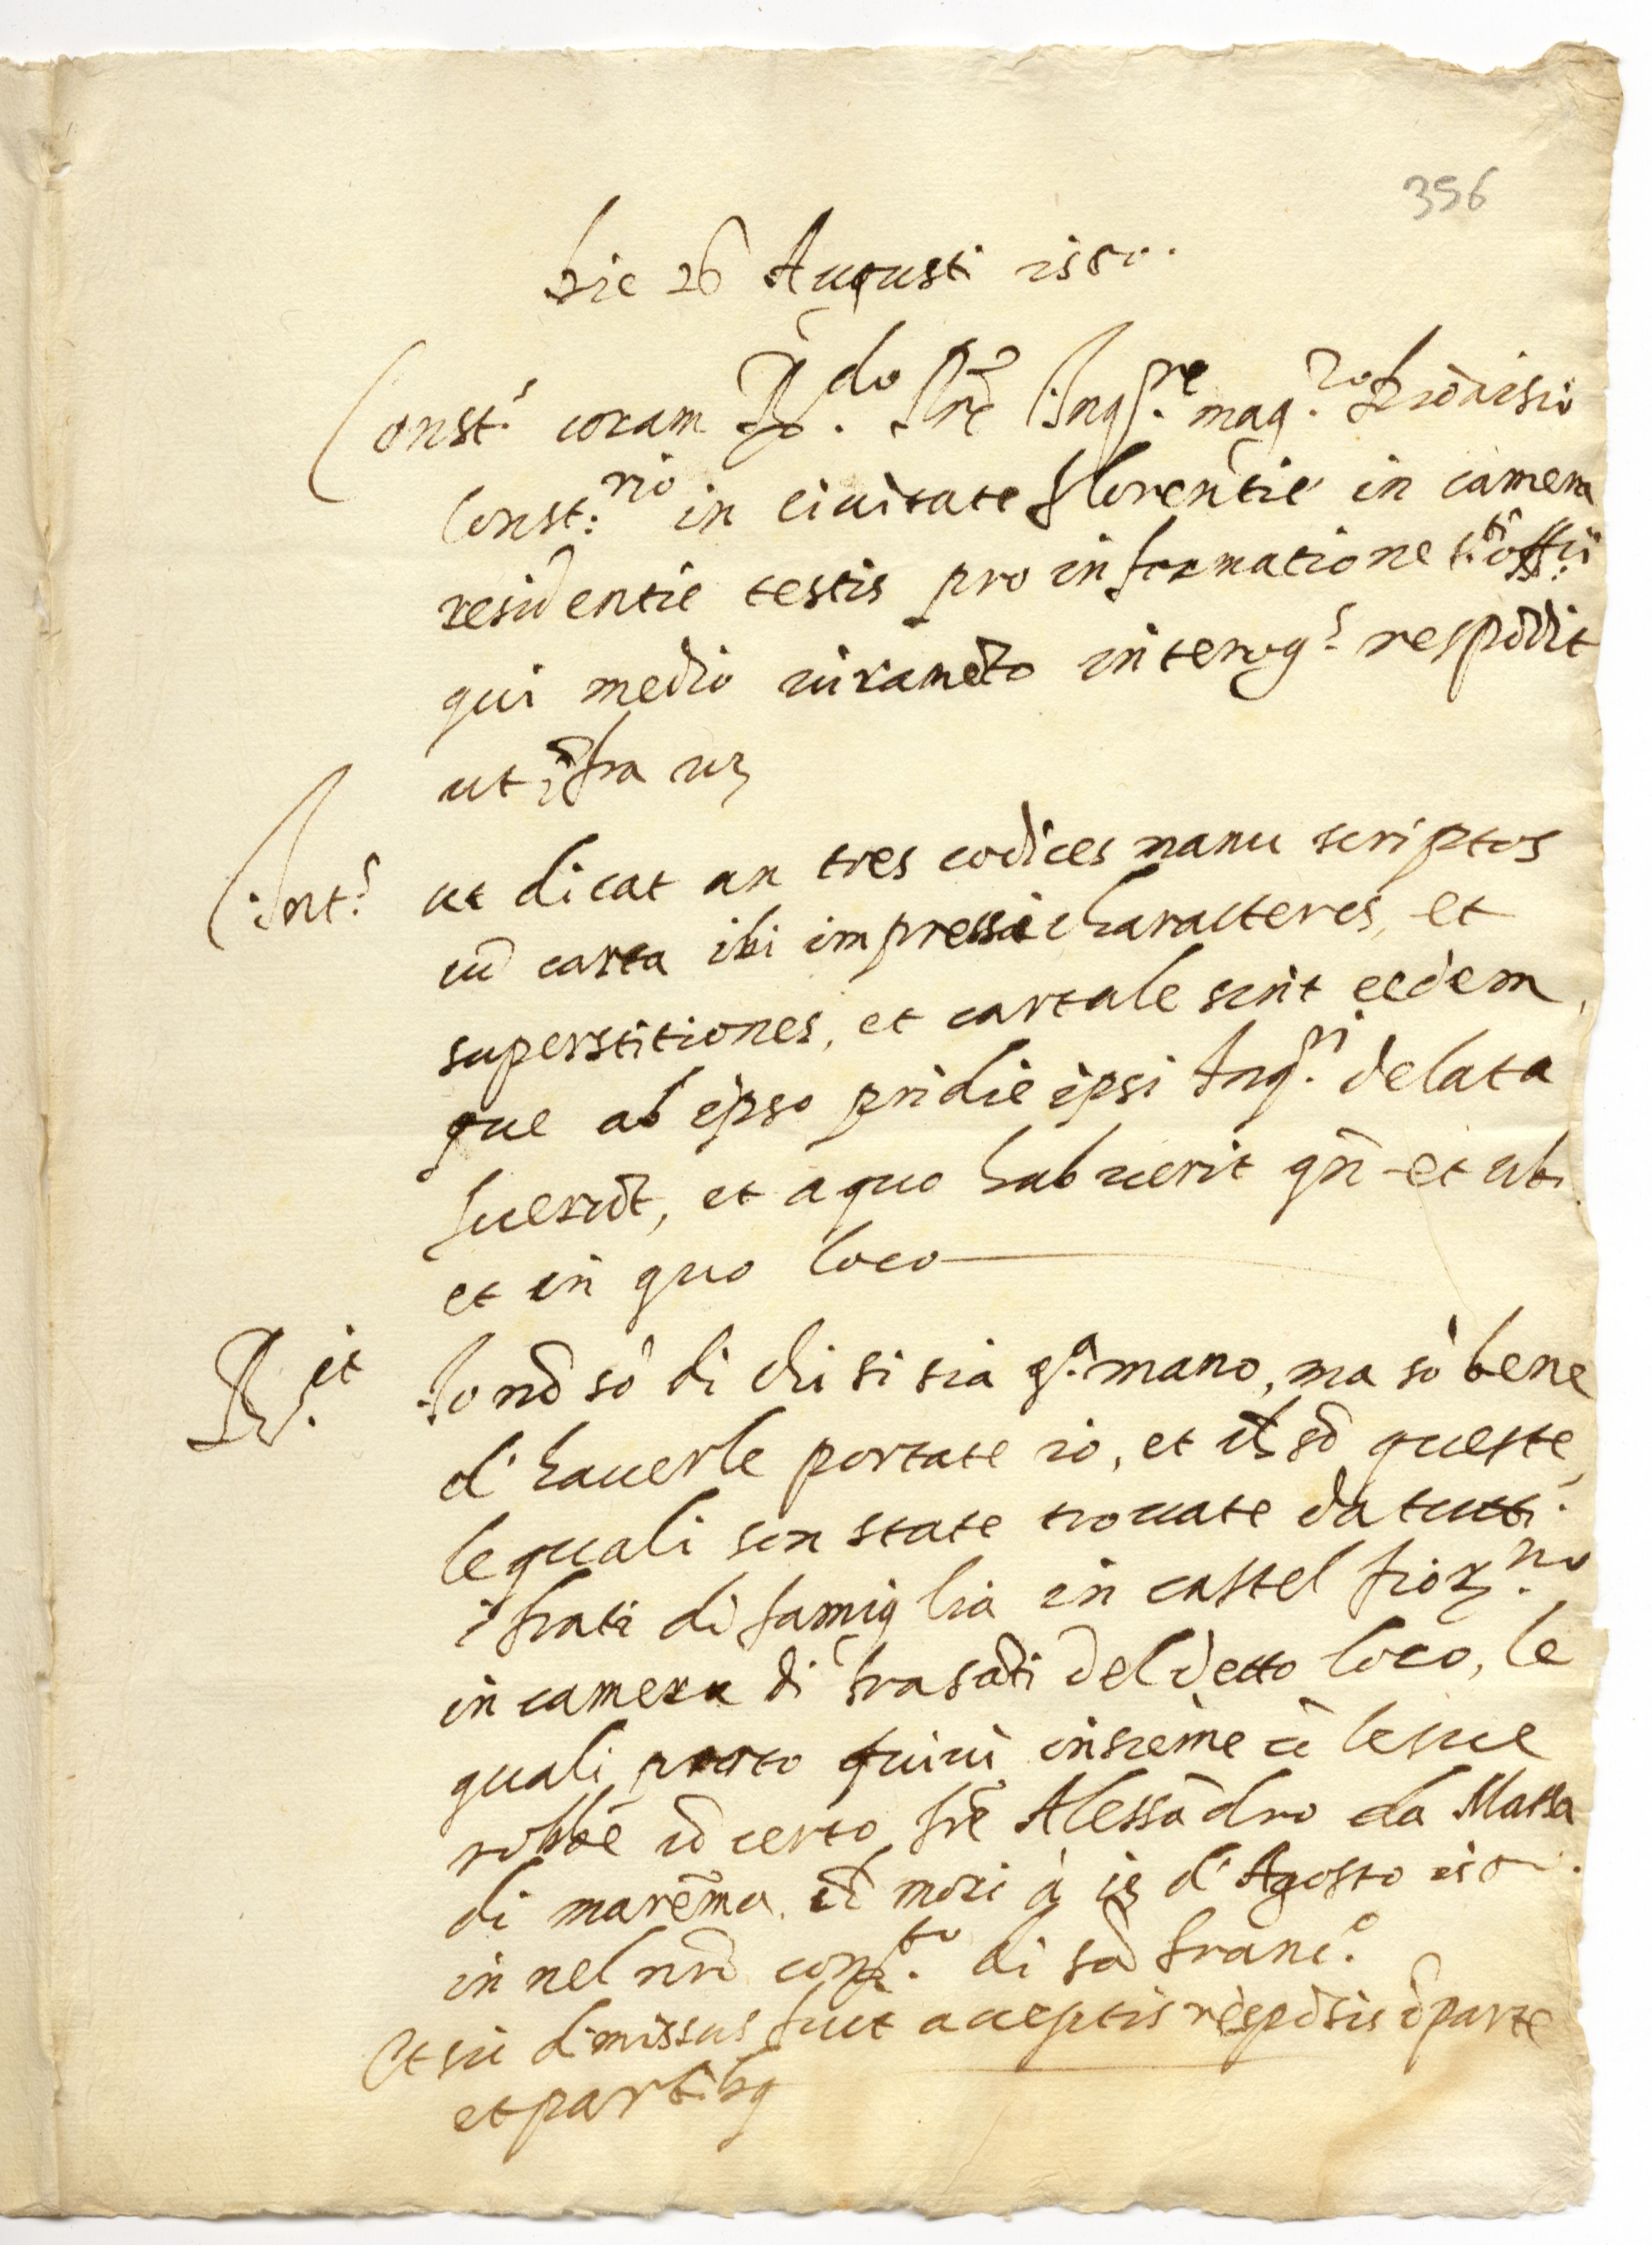 356
Die 26 Augusti
Const.s coram R.do Pre Inq.re mag.ro Dionisio
Const.rio in ciuitate florentie in camera
residentie testis pro informatione s.ti offitii
qui medio iurameto interog.s respodit
ut ifra uz
Int.s ut dicat an tres codices manu scriptos
cu carta ibi impressa characteres, et
superstitiones, et cartale sint eedem
que ab ipso pridie ipsi Inq.ri delata
fuerut, et a quo habuerit qn et ubi
et in quo loco
R.it Io no so di chi si sia q.a mano, ma so bene
d'hauerle portate io, et so queste,
le quali son state trouate da tutti
i frati di famiglia in castel fior.no
in camera di frasati del detto loco, le
quali porto quiui insieme co le sue
robbe u certo fre Alessadro da Massa
di marema. che mori a d'Agosto
in nel nro con.to di sa franc.o
Et sic dimissus fuit acceptis resposis i parte
et partibq